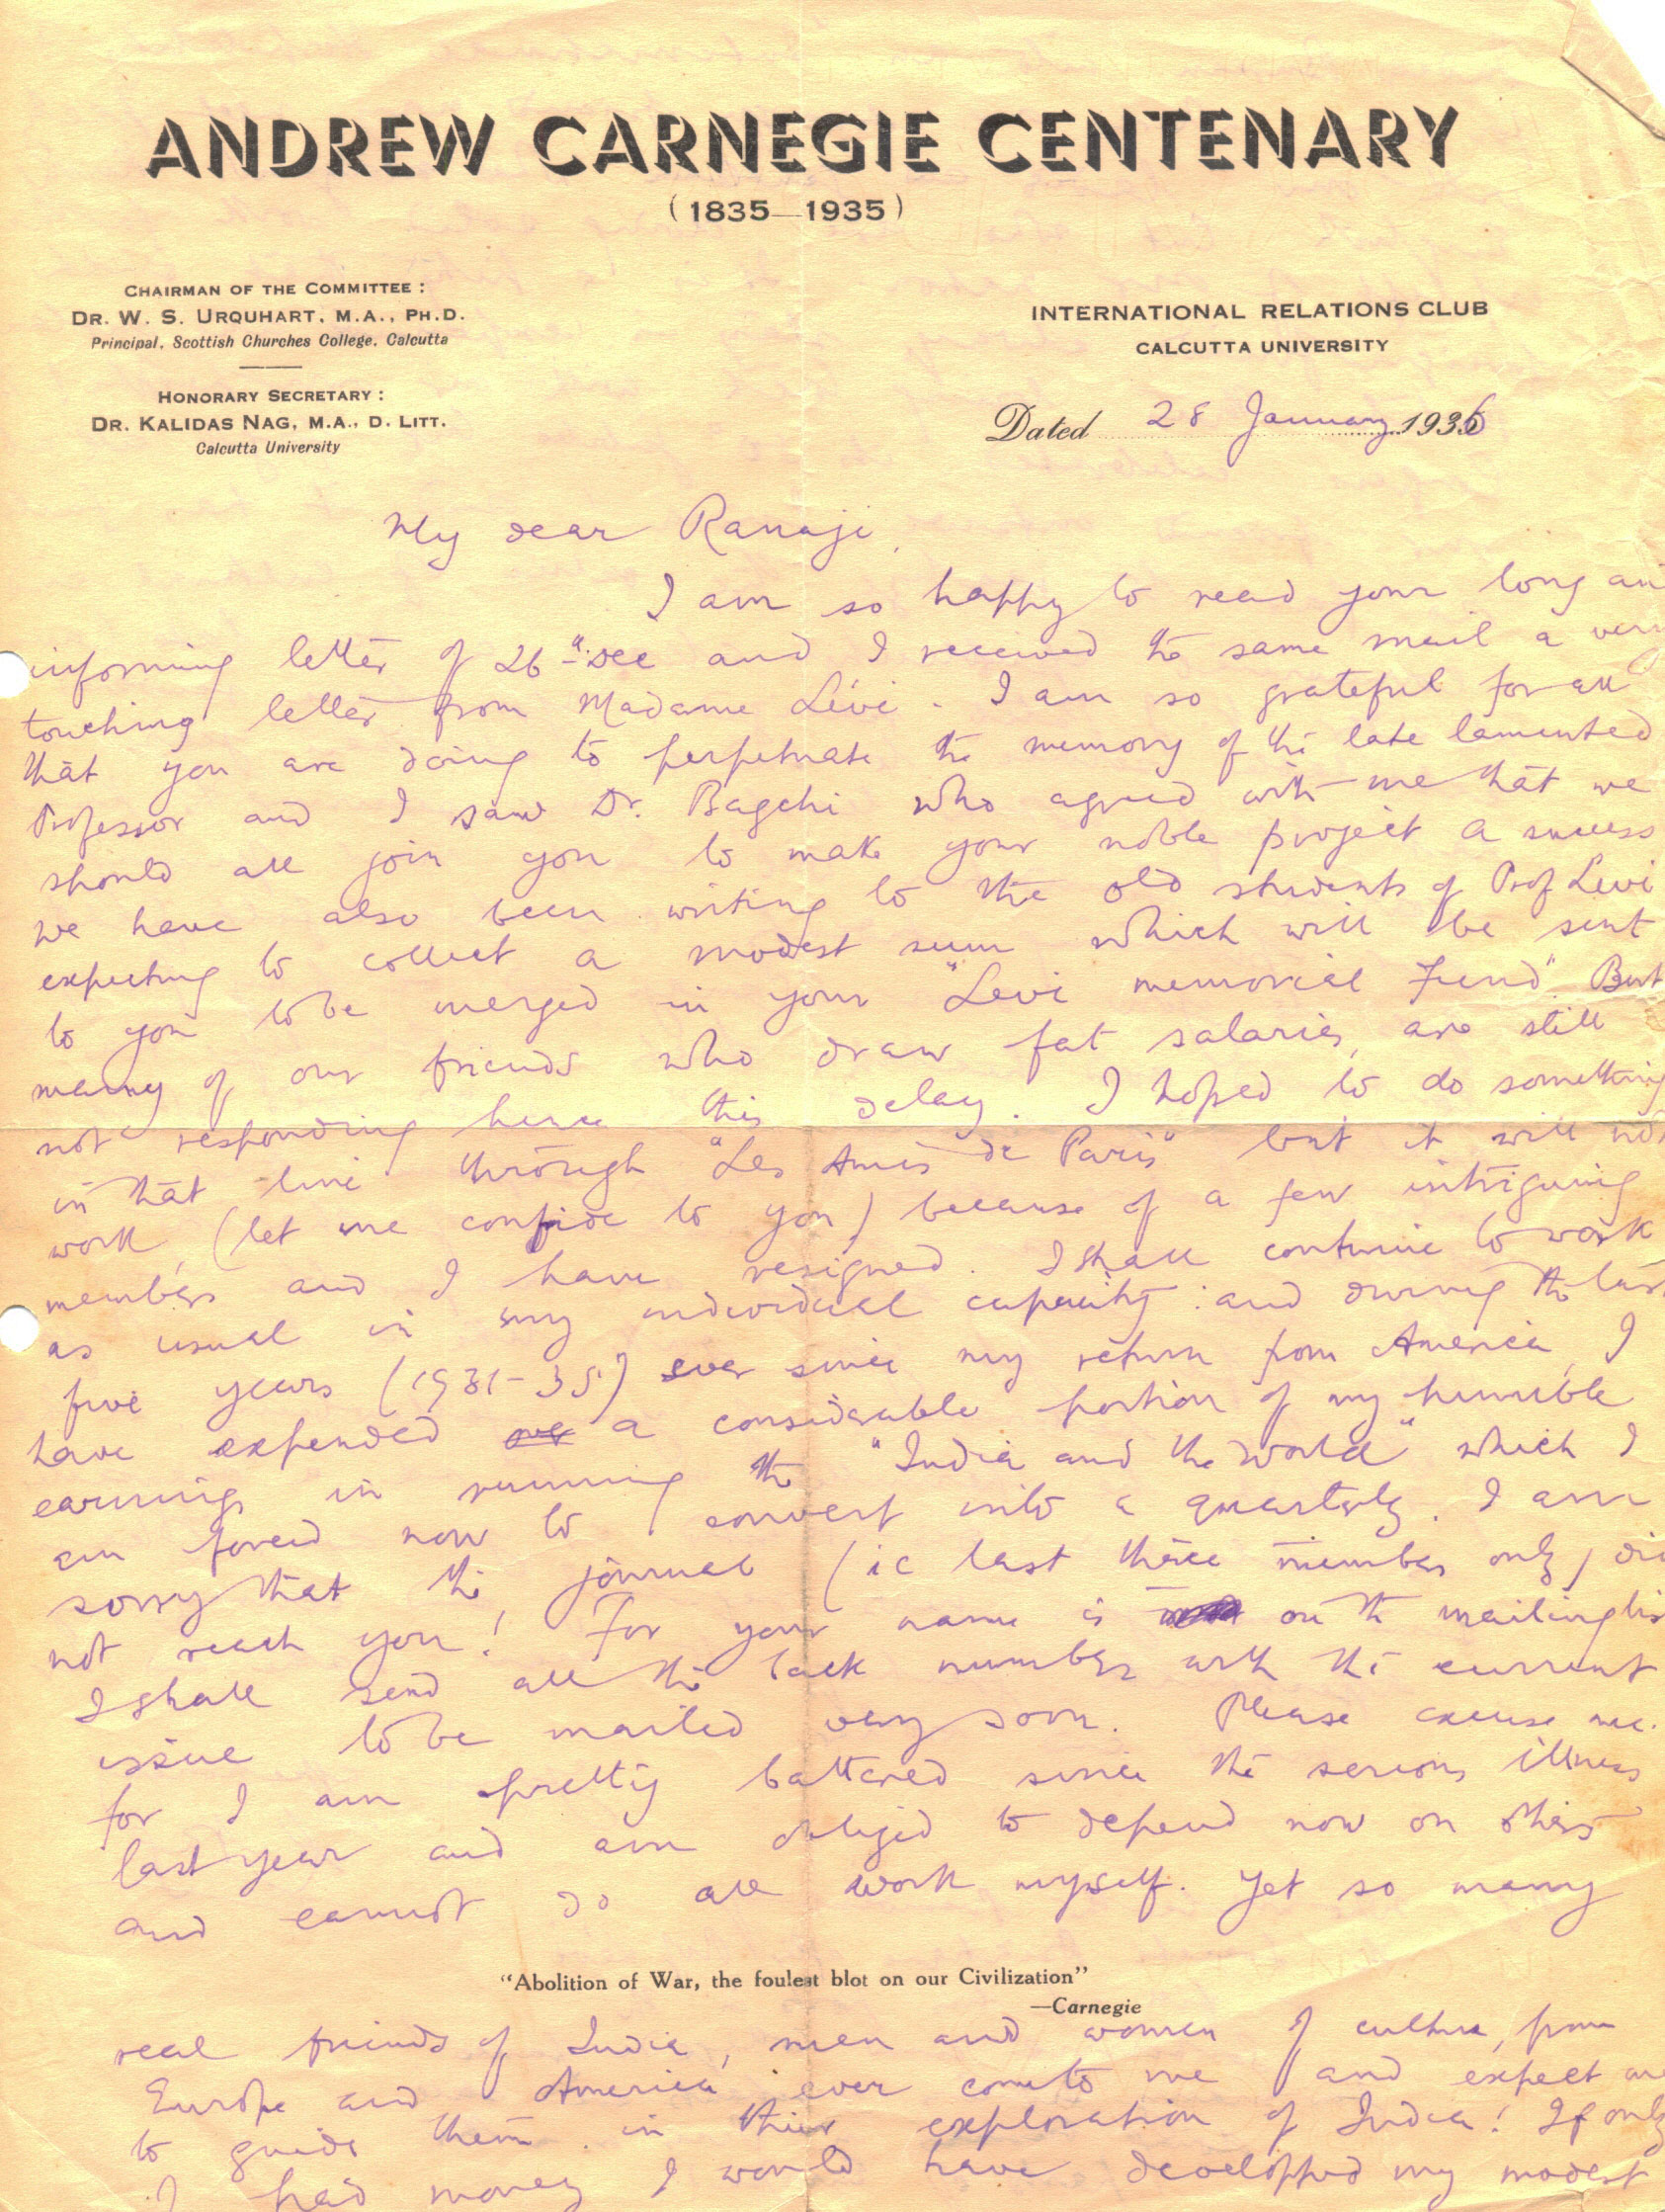 ANDREW CARNEGIE CENTENARY
(1835—1935)
CHAIRMAN OF THE COMMITTEE :
DR. W. S. URQUHART, M.A., PH.D.
Principal, Scottish Churches College, Calcutta
HONORARY SECRETARY :
DR. KALIDAS NAG, M.A., D. LITT.
Calcutta University
INTERNATIONAL RELATIONS CLUB
CALCUTTA UNIVERSITY
Dated 28 January 1936
My dear Ranaji,
I am so happy to read your long an
informing letter of 26th Dec and I received the same mail a very
touching letter from Madame Lévi. I am so grateful for all
that you are doing to perpetuate the memory of the late lamented
Professor and I saw Dr. Bagchi who agreed with me that we
should all join you to make your noble project a success
we have also been writing to the old students of Prof Levi
expecting to collect a modest sum which will be sent
to you to be merged in your "Levi memorial Fund". But
many of our friends who draw fat salaries, are still
not responding hence this delay. I hoped to do something
in that line through "Les Amis de Paris" but it will not
work, (let me confide to you) because of a few intriguing
members and I have resigned. I shall continue to work
as usual in my individual capacity : and during the last
five years (1931-35) ever since my return from America, I
have expended a considerable portion of my humble
earnings in running the "India and the World" which I
am forced now to convert into a quarterly. I am
sorry that the journal (ie last three number only) di
not reach you! For your name is on the mailing lis
I shall send all the back numbers with the current
issue to be mailed very soon. Please excuse me.
for I am pretty battered since the serious illness
last year and am obliged to depend now on others
and cannot do all work myself. Yet so many
"Abolition of War, the foulest blot on our Civilization"
—Carnegie
real friends of India, men and women of culture, from
Europe and America ever come to me and expect me
to guide them in their exploration of India! If only
I had money I would have developped my modest